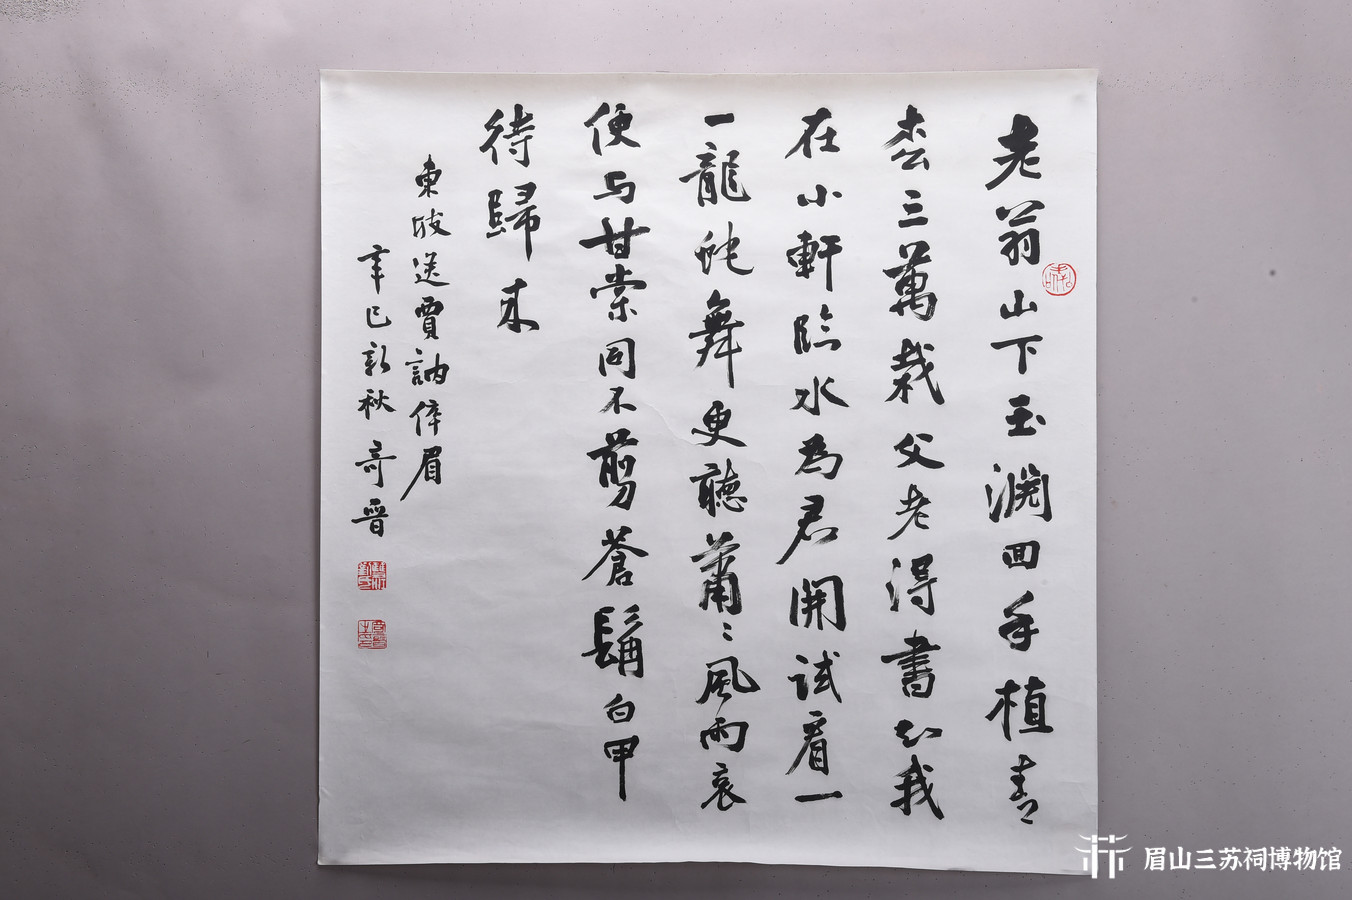 老翁山下玉淵回手植青
松三萬栽父老得書知我
在小軒臨水為君開試看一
一龍蛇舞更聽蕭〻風雨哀
便与甘棠同不剪蒼髯白甲
待歸来
東坡送賈訥倅眉
辛巳新秋 奇晋
眉山三苏祠博物馆